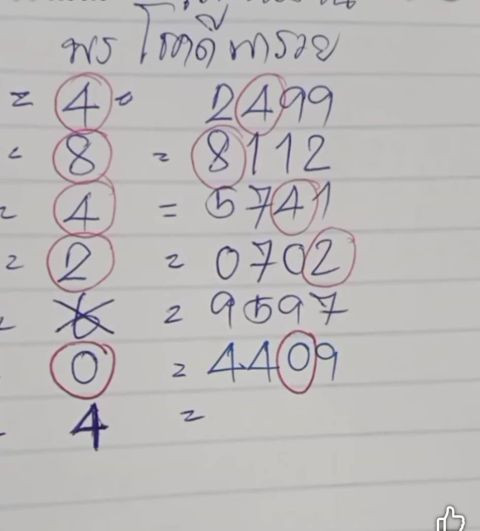 พร โชคดี พารวย
= 4 = 2499
= 8 = 8112
= 4 = 5741
= 2 = 0702
= 6 = 9597
0 = 4409
4 =